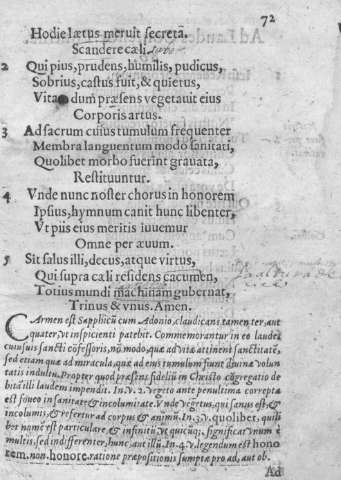 72
Hodie lætus meruit secretā.
Scandere cæli.
2 Qui pius, prudens, humilis, pudicus,
Sobrius, castus fuit, & quietus,
Vita dum præsens vegetauit eius
Corporis artus.
3 Ad sacrum cuius tumulum frequenter
Membra languentum modo sanitati,
Quolibet morbo fuerint grauata,
Restituuntur.
4 Vnde nunc noster chorus in honorem
Ipsius, hymnum canit hunc libenter,
Vt piis eius meritis iuuemur
Omne per æuum.
5 Sit salus illi, decus, atque virtus,
Qui supra cæli residens cacumen,
Totius mundi machinam gubernat,
Trinus & vnus. Amen.
Carmen est Sapphicū cum Adonio, claudicani tamen ter, aut
quater, vt inspicienti patebit. Commemorantur in eo laudes
cuiusuis sancti cōfessoris, nō modo, quæ ad vitæ attinent sanctitatē,
sed etiam quæ ad miracula, quæ ad eius tumulum fiunt diuina volun
tatis indultu. Propter quod præsens fideliū in Christo cōgregatio de
bitā illi laudem impendit. In. V. 2. vegeto ante penultima correpta
est foueo in sanitate & incolumitate. Vnde vegetus, qui sanus est, &
incolumis, & refertur ad corpus & animū. In. 3. v. quolibet, quāli
bet nomē est particulare, & infinitū, vt quicūq;, significat vnum è
multis, sed indifferenter, hunc aut illū. In 4. v. legendum est hono
rem, non honore. ratione præpositionis sumptæ pro ad, aut ob.
Ad